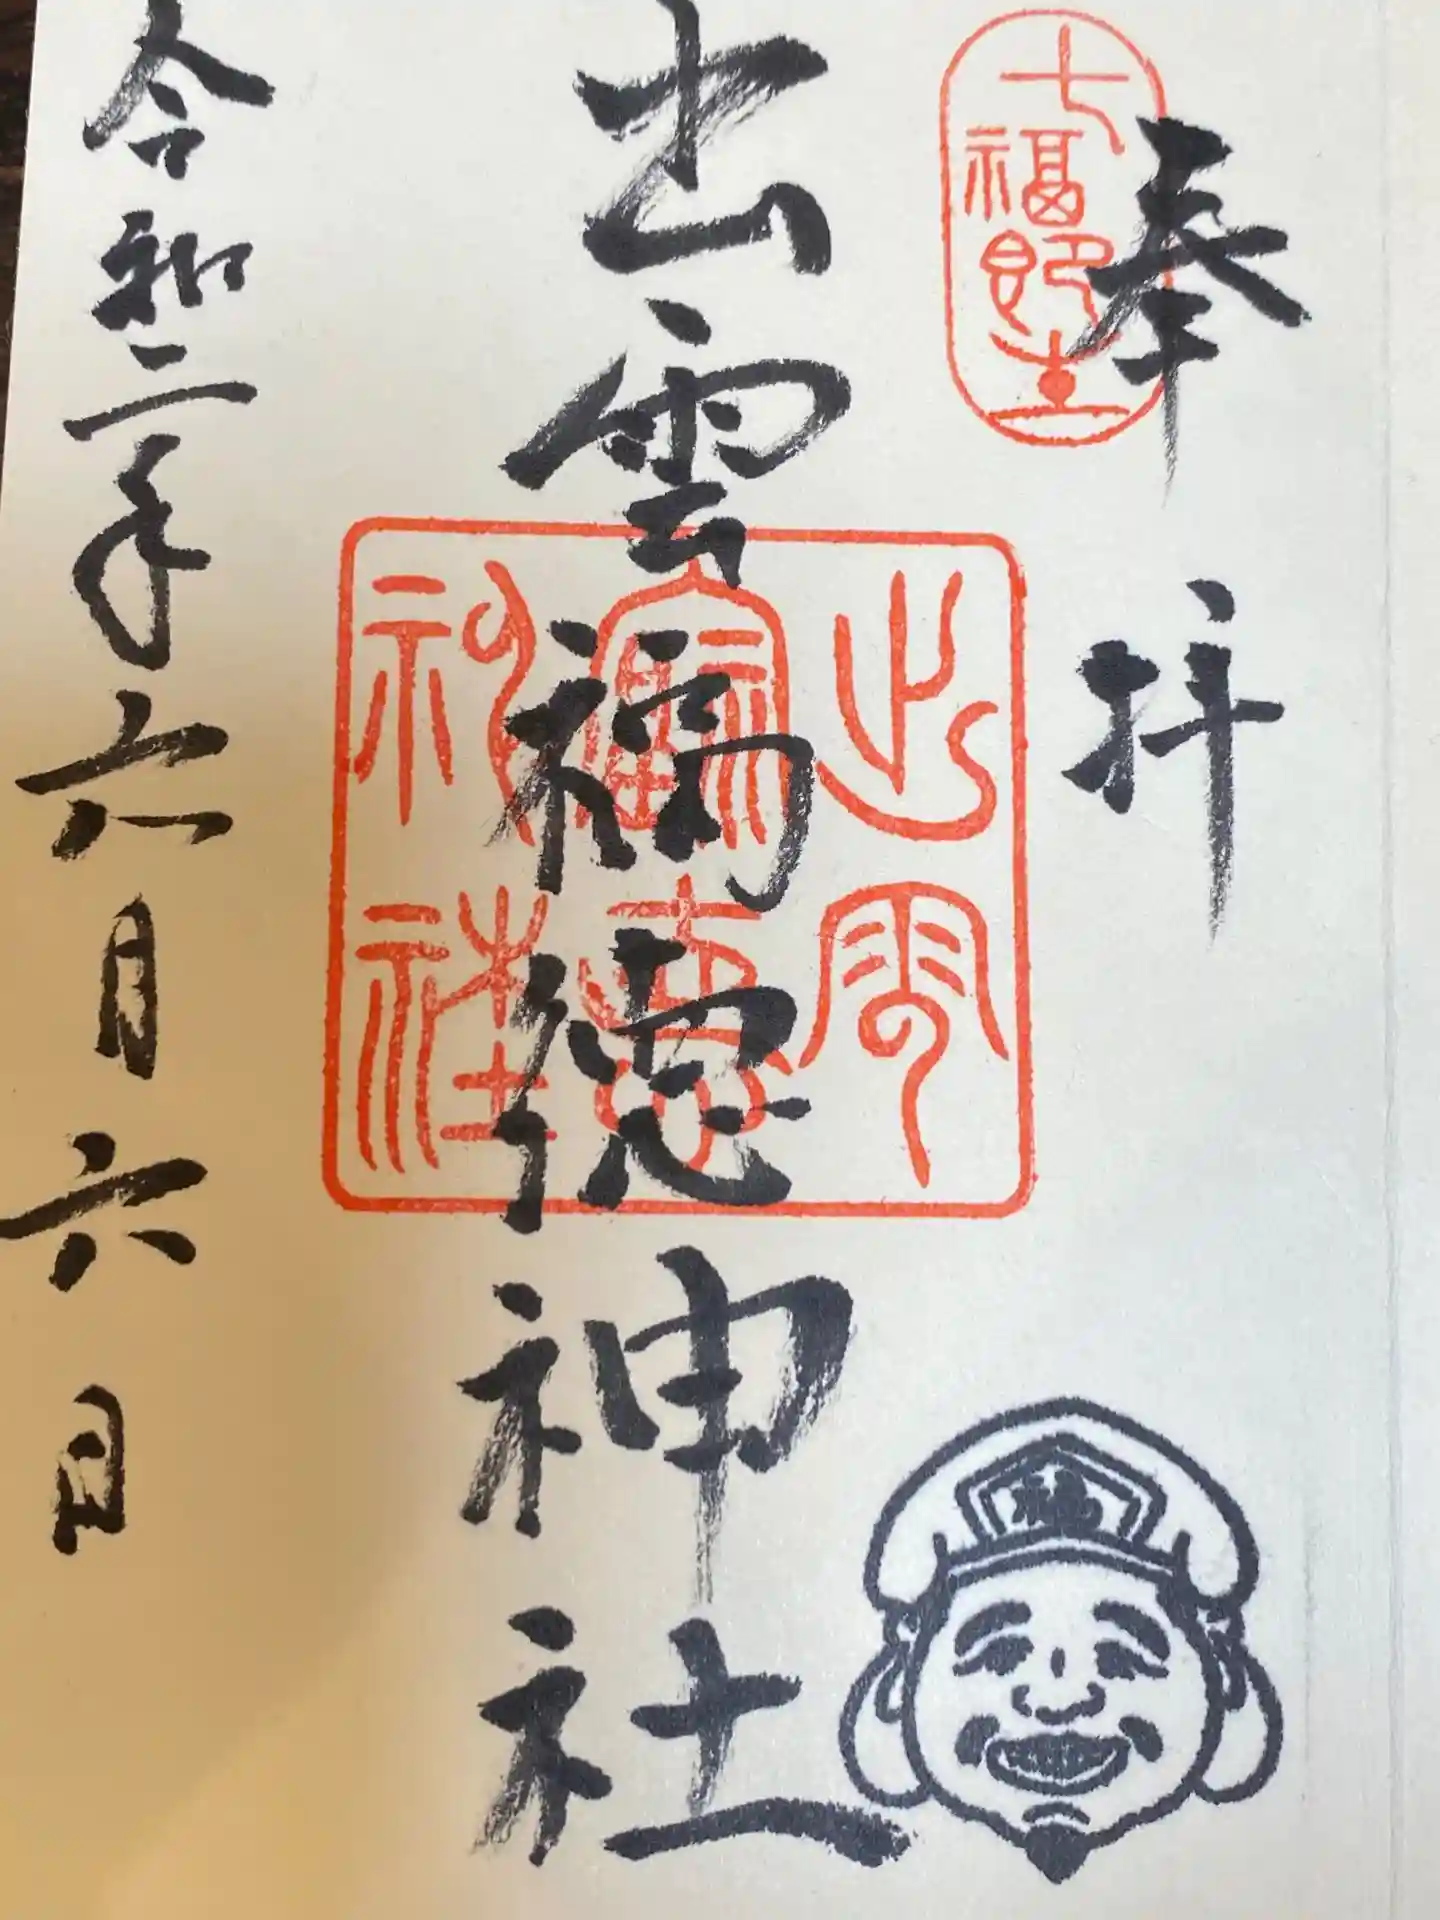 奉拝
七福即生
出雲福徳神社
出雲
福徳
神社
福
令和二年六月六日